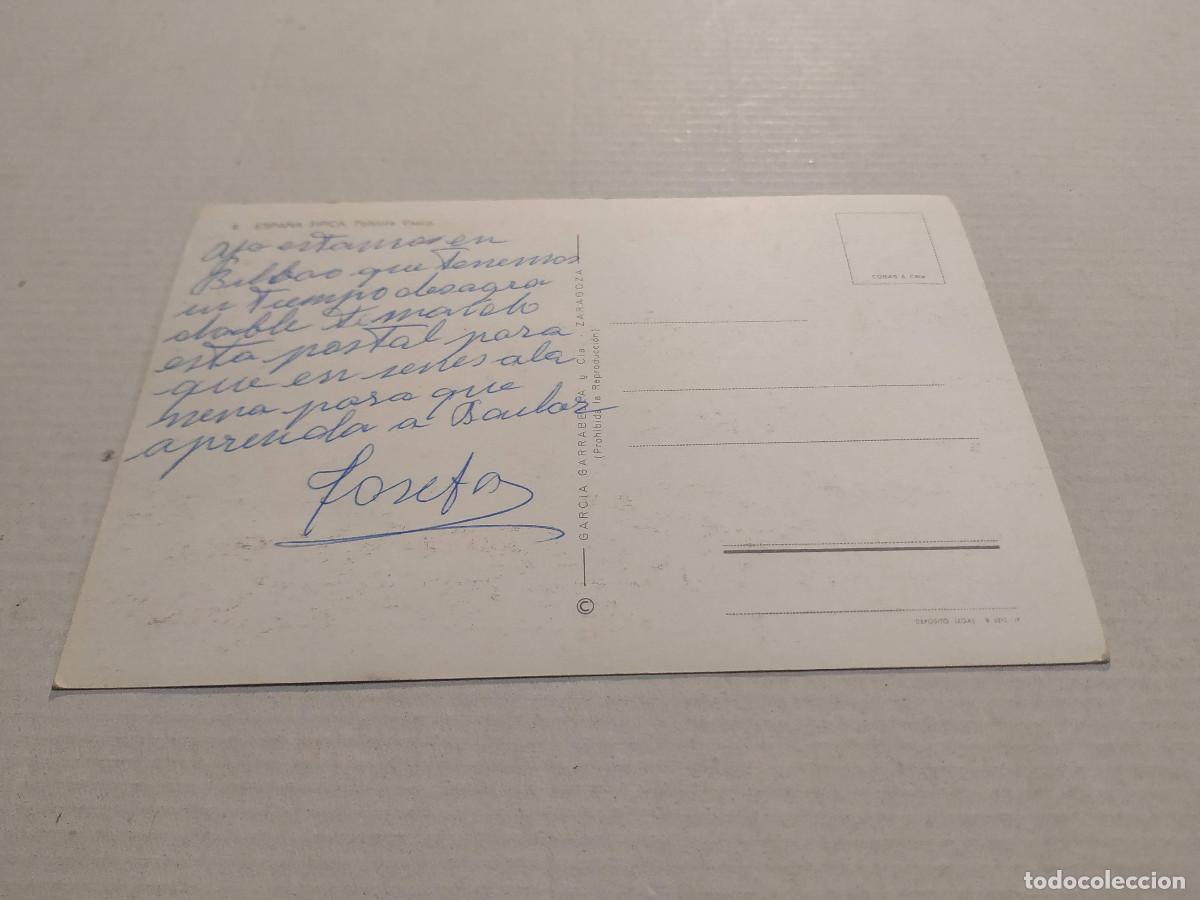 ESPAÑA TIPICA
ya estamos en
Bilbao que tenemos
un tiempo desagra
dable te mando
esta postal para
que en senes a la
nena para que
aprenda a Bailar
Josefa
© GARCIA GARRABELLA y Cía. ZARAGOZA
(Prohibida la Reproducción)
todocoleccion